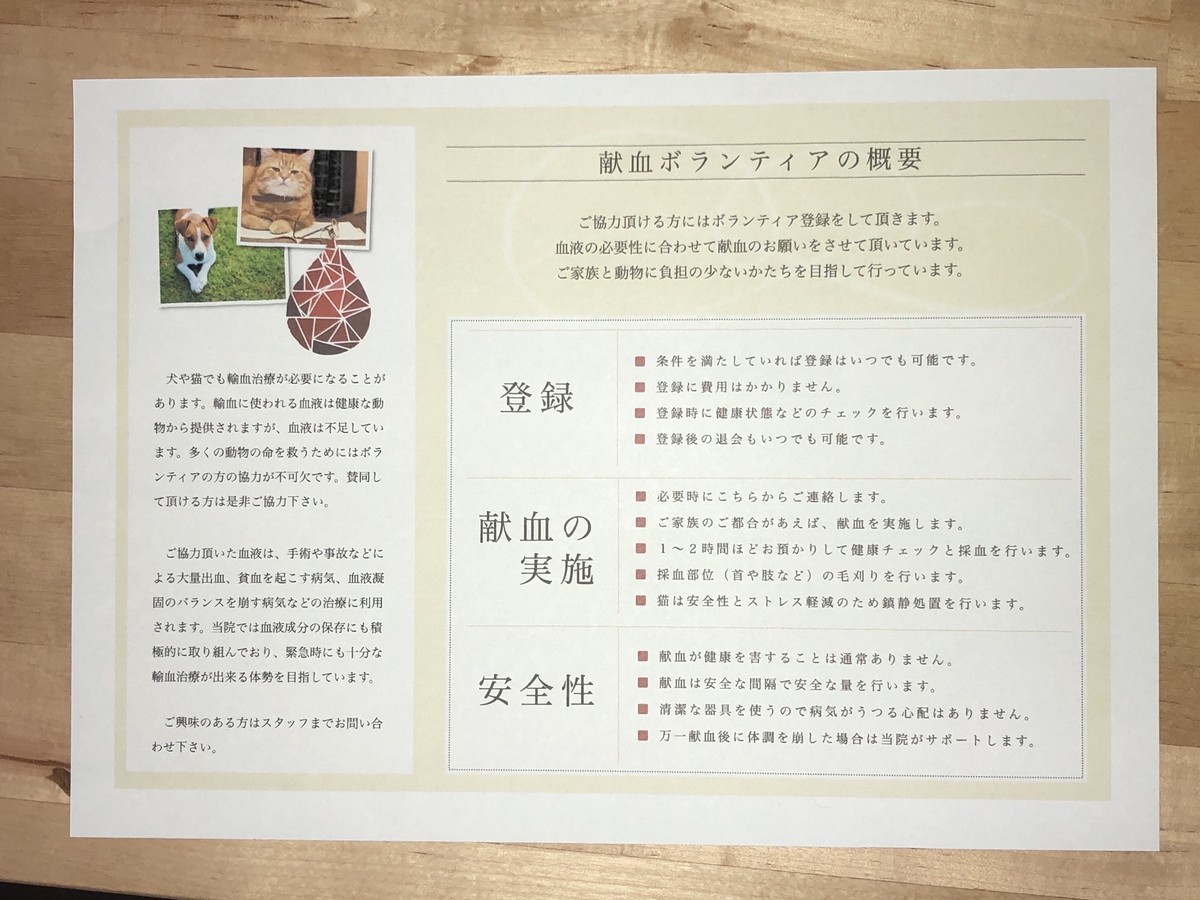 犬や猫でも輸血治療が必要になることが
あります。輸血に使われる血液は健康な動
物から提供されますが、血液は不足してい
ます。多くの動物の命を救うためにはボラ
ンティアの方の協力が不可欠です。賛同し
て頂ける方は是非ご協力下さい。
ご協力頂いた血液は、手術や事故などに
よる大量出血、貧血を起こす病気、血液凝
固のバランスを崩す病気などの治療に利用
されます。当院では血液成分の保存にも積
極的に取り組んでおり、緊急時にも十分な
輸血治療が出来る体勢を目指しています。
ご興味のある方はスタッフまでお問い合
わせ下さい。
献血ボランティアの概要
ご協力頂ける方にはボランティア登録をして頂きます。
血液の必要性に合わせて献血のお願いをさせて頂いています。
ご家族と動物に負担の少ないかたちを目指して行っています。
登録
■ 条件を満たしていれば登録はいつでも可能です。
■ 登録に費用はかかりません。
■ 登録時に健康状態などのチェックを行います。
■ 登録後の退会もいつでも可能です。
献血の
実施
■ 必要時にこちらからご連絡します。
■ ご家族のご都合があえば、献血を実施します。
■ 1〜2時間ほどお預かりして健康チェックと採血を行います。
■ 採血部位（首や肢など）の毛刈りを行います。
■ 猫は安全性とストレス軽減のため鎮静処置を行います。
安全性
■ 献血が健康を害することは通常ありません。
■ 献血は安全な間隔で安全な量を行います。
■ 清潔な器具を使うので病気がうつる心配はありません。
■ 万一献血後に体調を崩した場合は当院がサポートします。